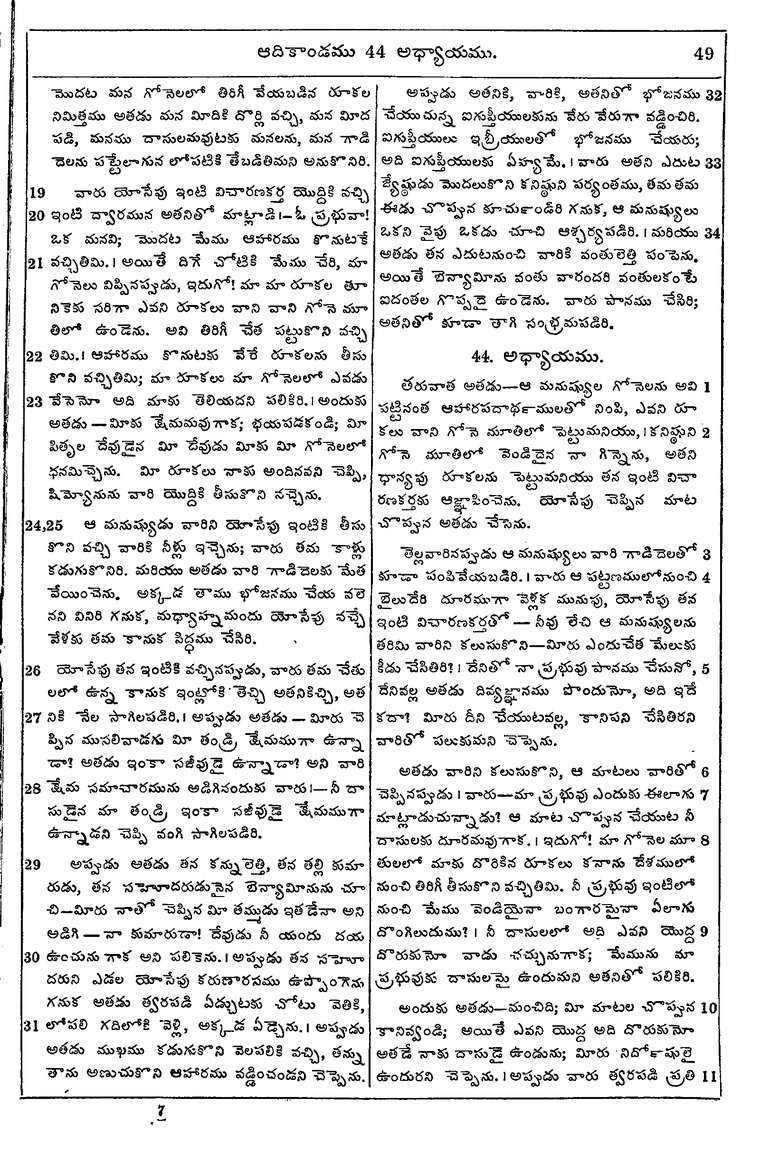 ఆదికాండము 44 అధ్యాయము. 49
మొదట మన గోనెలలో తిరిగీ వేయబడిన రూకల
నిమిత్తము అతడు మన మీదికి దొర్లి వచ్చి, మన మీద
పడి, మనము దాసులమవుటకు మనలను, మన గాడి
దెలను పట్టేలాగున లోపటికి తేబడితిమని అనుకొనిరి.
19 వారు యోసేపు ఇంటి విచారణకర్త యొద్దికి వచ్చి
20 ఇంటి ద్వారమున అతనితో మాట్లాడి।—ఓ ప్రభువా!
ఒక మనవి; మొదట మేము ఆహారము కొనుటకే
21 వచ్చితిమి.। అయితే దిగే చోటికి మేము చేరి, మా
గోనెలు విప్పినప్పుడు, ఇదుగో! మా మా రూకల తూ
నికెకు సరిగా ఎవని రూకలు వాని వాని గోనె మూ
తిలో ఉండెను. అవి తిరిగీ చేత పట్టుకొని వచ్చి
22 తిమి.। ఆహారము కొనుటకు వేరే రూకలను తీసు
కొని వచ్చితిమి; మా రూకలు మా గోనెలలో ఎవడు
23 వేసెనో అది మాకు తెలియదని పలికిరి.। అందుకు
అతడు—మీకు క్షేమమవుగాక; భయపడకండి; మీ
పితృల దేవుడైన మీ దేవుడు మీకు మీ గోనెలలో
ధనమిచ్చెను. మీ రూకలు నాకు అందినవని చెప్పి,
షిమ్యోనును వారి యొద్దికి తీసుకొని వచ్చెను.
24,25 ఆ మనుష్యుడు వారిని యోసేపు ఇంటికి తీసు
కొని వచ్చి వారికి నీళ్లు ఇచ్చెను; వారు తమ కాళ్లు
కడుగుకొనిరి. మరియు అతడు వారి గాడిదెలకు మేత
వేయించెను. అక్కడ తాము భోజనము చేయ వలె
నని వినిరి గనుక, మధ్యాహ్నమందు యోసేపు వచ్చే
వేళకు తమ కానుక సిద్ధము చేసిరి.
26 యోసేపు తన ఇంటికి వచ్చినప్పుడు, వారు తమ చేతు
లలో ఉన్న కానుక ఇంట్లోకి తెచ్చి అతనికిచ్చి, అత
27 నికి నేల సాగిలపడిరి.। అప్పుడు అతడు—మీరు చె
ప్పిన ముసలివాడగు మీ తండ్రి క్షేమముగా ఉన్నా
డా? అతడు ఇంకా సజీవుడై ఉన్నాడా? అని వారి
28 క్షేమ సమాచారమును అడిగినందుకు వారు।—నీ దా
సుడైన మా తండ్రి ఇంకా సజీవుడై క్షేమముగా
ఉన్నాడని చెప్పి వంగి సాగిలపడిరి.
29 అప్పుడు అతడు తన కన్నులెత్తి, తన తల్లి కుమా
రుడు, తన సహోదరుడునైన బెన్యామీనును చూ
చి—మీరు నాతో చెప్పిన మీ తమ్ముడు ఇతడేనా అని
అడిగి—నా కుమారుడా! దేవుడు నీ యందు దయ
30 ఉంచును గాక అని పలికెను.। అప్పుడు తన సహో
దరుని ఎడల యోసేపు కరుణారసము ఉప్పొంగెను
గనుక అతడు త్వరపడి ఏడ్చుటకు చోటు వెతికి,
31 లోపలి గదిలోకి వెళ్లి, అక్కడ ఏడ్చెను.। అప్పుడు
అతడు ముఖము కడుగుకొని వెలపలికి వచ్చి, తన్ను
తాను అణుచుకొని ఆహారము వడ్డించండని చెప్పెను.
అప్పుడు అతనికి, వారికి, అతనితో భోజనము 32
చేయుచున్న ఐగుప్తీయులకును వేరు వేరుగా వడ్డించిరి.
ఐగుప్తీయులు ఇబ్రీయులతో భోజనము చేయరు;
అది ఐగుప్తీయులకు ఏహ్యమే.। వారు అతని ఎదుట 33
జ్యేష్ఠుడు మొదలుకొని కనిష్ఠుని పర్యంతము, తమ తమ
ఈడు చొప్పున కూచుండిరి గనుక, ఆ మనుష్యులు
ఒకని వైపు ఒకడు చూచి ఆశ్చర్యపడిరి.। మరియు 34
అతడు తన ఎదుటనుంచి వారికి వంతులెత్తి పంపెను.
అయితే బెన్యామీను వంతు వారందరి వంతులకంటె
ఐదంతల గొప్పదై ఉండెను. వారు పానము చేసిరి;
అతనితో కూడా తాగి సంభ్రమపడిరి.
44. అధ్యాయము.
తరువాత అతడు—ఆ మనుష్యుల గోనెలను అవి 1
పట్టినంత ఆహారపదార్థములతో నింపి, ఎవని రూ
కలు వాని గోనె మూతిలో పెట్టుమనియు,। కనిష్ఠుని 2
గోనె మూతిలో వెండిదైన నా గిన్నెను, అతని
ధాన్యపు రూకలను పెట్టుమనియు తన ఇంటి విచా
రణకర్తకు ఆజ్ఞాపించెను. యోసేపు చెప్పిన మాట
చొప్పున అతడు చేసెను.
తెల్లవారినప్పుడు ఆ మనుష్యులు వారి గాడిదెలతో 3
కూడా పంపివేయబడిరి.। వారు ఆ పట్టణములోనుంచి 4
బైలుదేరి దూరముగా వెళ్లక మునుపు, యోసేపు తన
ఇంటి విచారణకర్తతో—నీవు లేచి ఆ మనుష్యులను
తరిమి వారిని కలుసుకొని—మీరు ఎందుచేత మేలుకు
కీడు చేసితిరి?। దేనితో నా ప్రభువు పానము చేసునో, 5
దేనివల్ల అతడు దివ్యజ్ఞానము పొందునో, అది ఇదే
కదా? మీరు దీని చేయుటవల్ల, కానిపని చేసితిరని
వారితో పలుకుమని చెప్పెను.
అతడు వారిని కలుసుకొని, ఆ మాటలు వారితో 6
చెప్పినప్పుడు। వారు—మా ప్రభువు ఎందుకు ఈలాగు 7
మాట్లాడుచున్నాడు? ఆ మాట చొప్పున చేయుట నీ
దాసులకు దూరమవుగాక.। ఇదుగో! మా గోనెల మూ 8
తులలో మాకు దొరికిన రూకలు కనాను దేశములో
నుంచి తిరిగీ తీసుకొని వచ్చితిమి. నీ ప్రభువు ఇంటిలో
నుంచి మేము వెండియైనా బంగారమైనా ఏలాగు
దొంగిలుదుము?। నీ దాసులలో అది ఎవని యొద్ద 9
దొరుకునో వాడు చచ్చునుగాక; మేమును మా
ప్రభువుకు దాసులమై ఉందుమని అతనితో పలికిరి.
అందుకు అతడు—మంచిది; మీ మాటల చొప్పున 10
కానివ్వండి; అయితే ఎవని యొద్ద అది దొరుకునో
అతడే నాకు దాసుడై ఉండును; మీరు నిర్దోషులై
ఉందురని చెప్పెను.। అప్పుడు వారు త్వరపడి ప్రతి 11
7